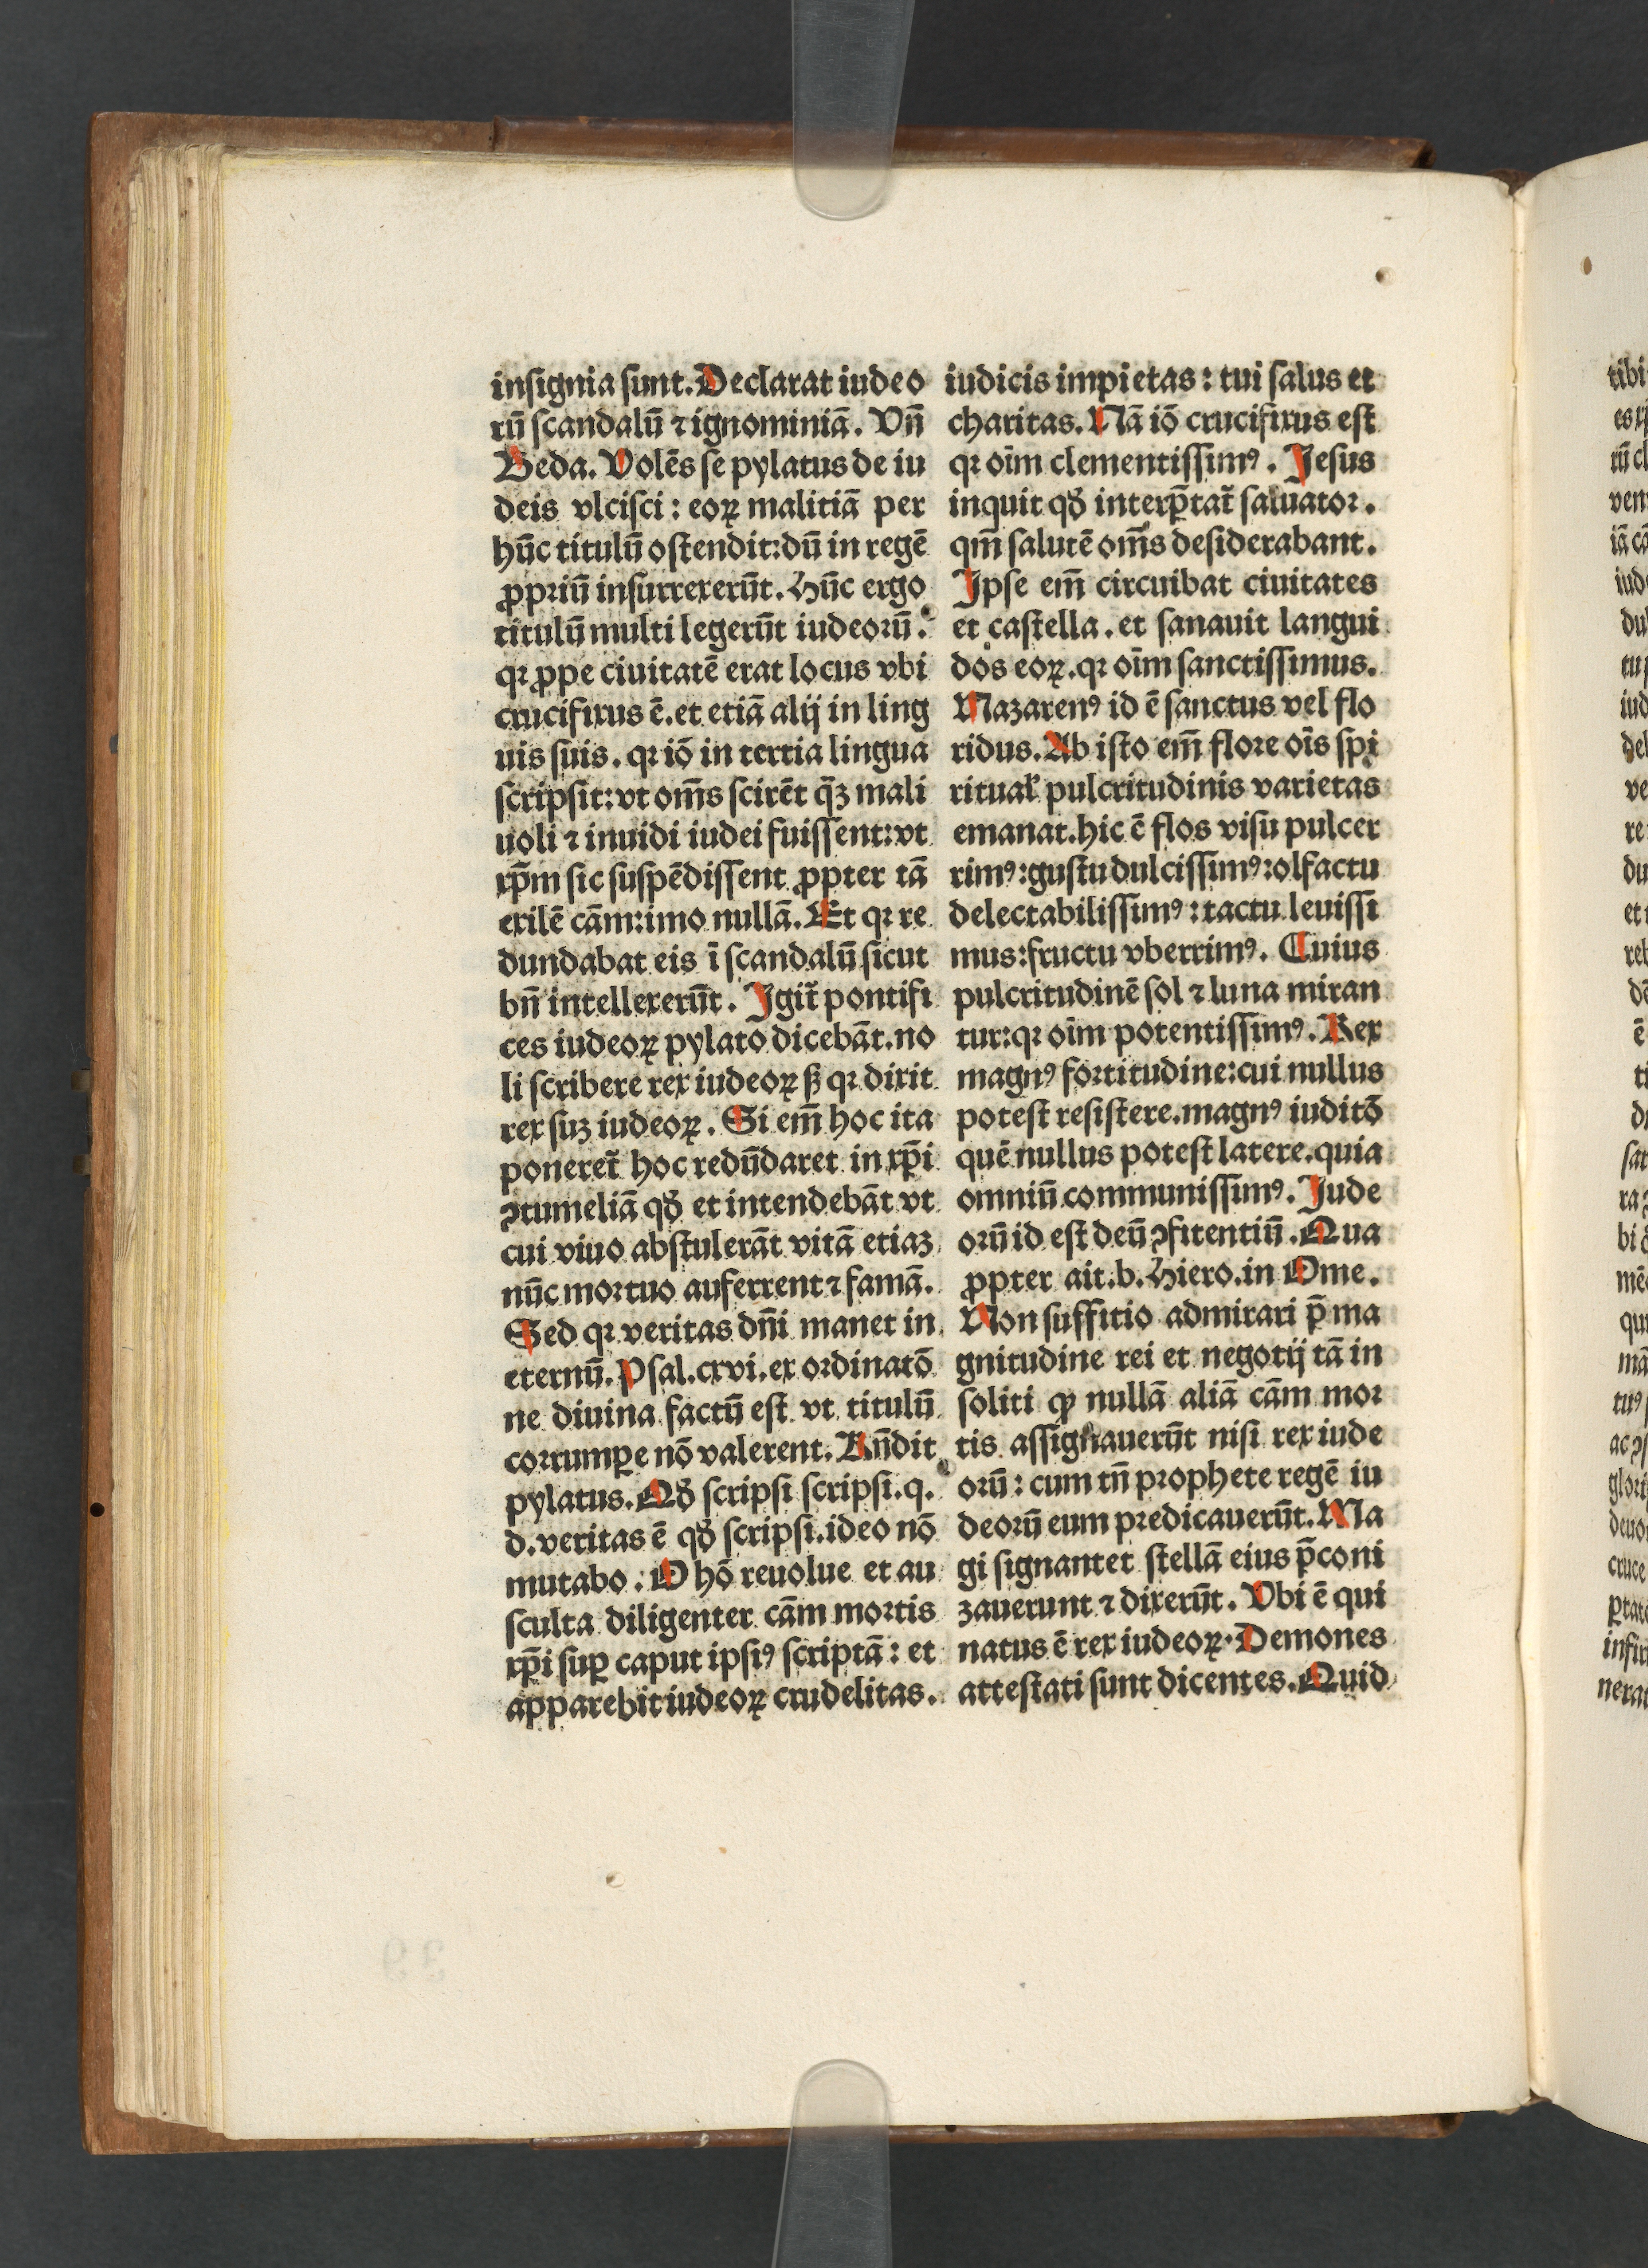 insignia sunt. Declarat iudeo
rū scandalū ⁊ ignominiā. Vn̄
Beda. Volēs se pylatus de iu
deis vlcisci: eoꝝ malitiā per
hūc titulū ostendit: dū in regē
ꝓpriū insurrexerūt. Hūc ergo
titulū multi legerūt iudeorū.
qꝛ ꝓpe ciuitatē erat locus vbi
crucifixus ē. et etiā alij in ling
uis suis. qꝛ iō in tertia lingua
scripsit: vt om̄s scirēt q̄ꝫ mali
uoli ⁊ inuidi iudei fuissent: vt
xp̄m sic suspēdissent ꝓpter tā
exilē cām: imo nullā. Et qꝛ re
dundabat eis ī scandalū sicut
bn̄ intellexerūt. Igit̄ pontifi
ces iudeoꝝ pylato dicebāt. no
li scribere rex iudeoꝝ ſꝫ qꝛ dixit
rex suꝫ iudeoꝝ. Si em̄ hoc ita
poneret̄ hoc redūdaret in xp̄i
ꝯtumeliā qđ et intendebāt vt
cui viuo abstulerāt vitā etiaꝫ
nūc mortuo auferrent ⁊ famā.
Sed qꝛ veritas dn̄i manet in
eternū. Psal. cxvi. ex ordinatō
ne diuina factū est vt titulū
corrumꝑe nō valerent. Rn̄dit
pylatus. Qđ scripsi scripsi. q.
d. veritas ē qđ scripsi. ideo nō
mutabo. O hō reuolue et au
sculta diligenter cām mortis
xp̄i suꝑ caput ipsiꝰ scriptā: et
apparebit iudeoꝝ crudelitas.
iudicis impietas: tui salus et
charitas. Nā iō crucifixus est
qꝛ oīm clementissimꝰ. Jesus
inquit qđ interp̄tat̄ saluator.
qm̄ salutē om̄s desiderabant.
Ipse em̄ circuibat ciuitates
et castella. et sanauit langui
dos eoꝝ. qꝛ oīm sanctissimus.
Nazarenꝰ id ē sanctus vel flo
ridus. Ab isto em̄ flore oīs spi
ritual̛ pulcritudinis varietas
emanat. hic ē flos visu pulcer
rimꝰ: gustu dulcissimꝰ: olfactu
delectabilissimꝰ: tactu leuissi
mus: fructu vberrimꝰ. Cuius
pulcritudinē sol ⁊ luna miran
tur: qꝛ oīm potentissimꝰ. Rex
magnꝰ fortitudine: cui nullus
potest resistere. magnꝰ iuditō
quē nullus potest latere. quia
omniū communissimꝰ. Jude
orū id est deū ꝯfitentiū. Qua
ꝓpter ait. b. Hiero. in Ome.
Non suffitio admirari p̄ ma
gnitudine rei et negotij tā in
soliti ꝙ nullā aliā cām mor
tis assignauerūt nisi rex iude
orū: cum tn̄ prophete regē iu
deorū eum predicauerūt. Ma
gi signanter stellā eius p̄coni
zauerunt ⁊ dixerūt. Vbi ē qui
natus ē rex iudeoꝝ. Demones
attestati sunt dicentes. Quid